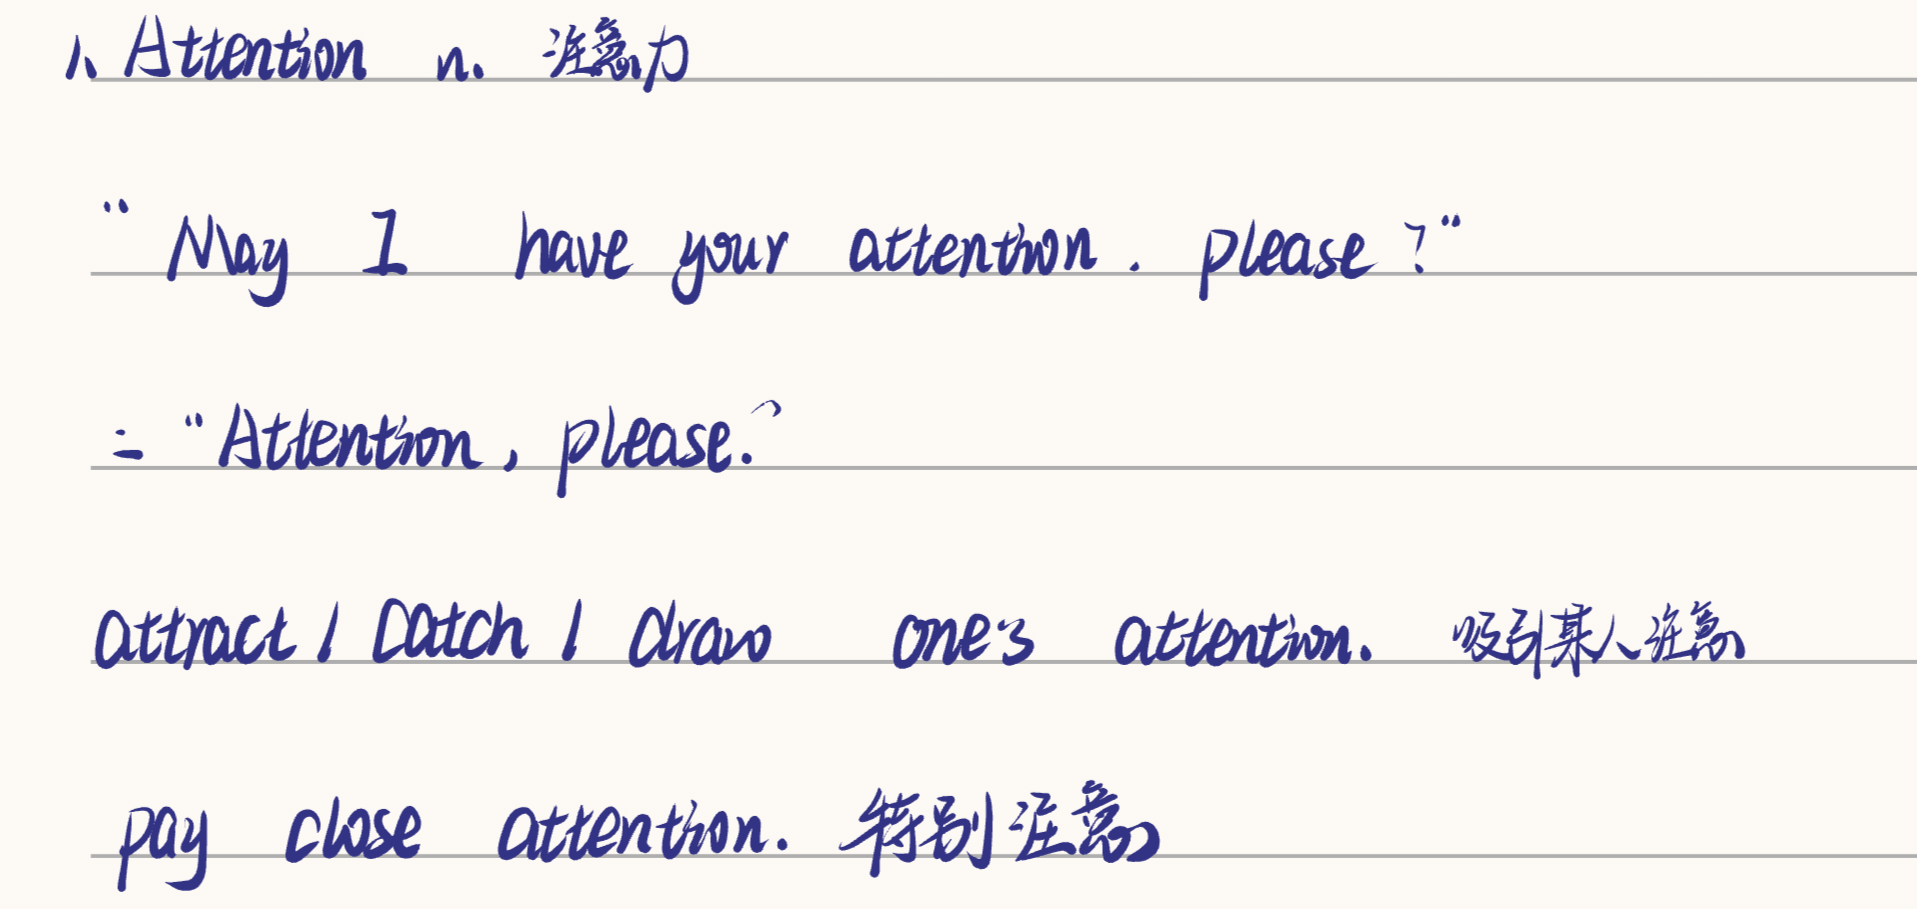 1、Attention n. 注意力
"May I have your attention. please?"
= "Attention, please."
attract / catch / draw one's attention. 吸引某人注意
pay close attention. 特别注意